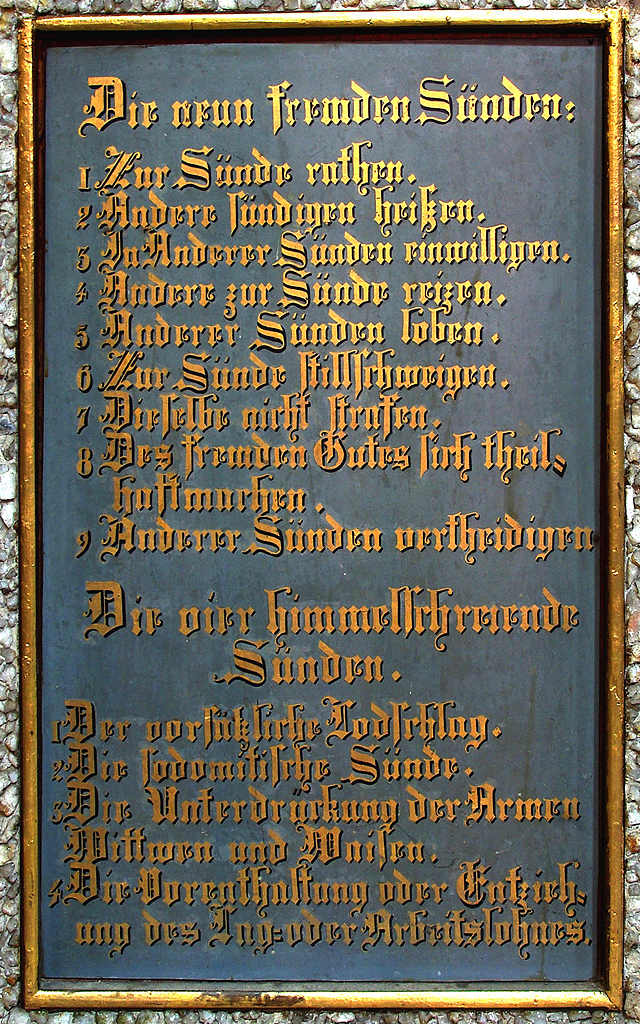 Die neun fremden Sünden:
1. Zur Sünde rathen.
2 Andere sündigen heißen.
3 In Anderer Sünden einwilligen.
4 Andere zur Sünde reizen.
5 Anderer Sünden loben.
6 Zur Sünde stillschweigen.
7 Dieselbe nicht strafen.
8 Des fremden Gutes sich theil-
haftmachen.
9 Anderer Sünden vertheidigen
Die vier himmelschreiende
Sünden.
1 Der vorsätzliche Todschlag.
2. Die sodomitische Sünde.
3 Die Unterdrückung der Armen
Wittwen und Waisen.
4 Die Vorenthaltung oder Entzieh-
ung des Tag- oder Arbeitslohnes.